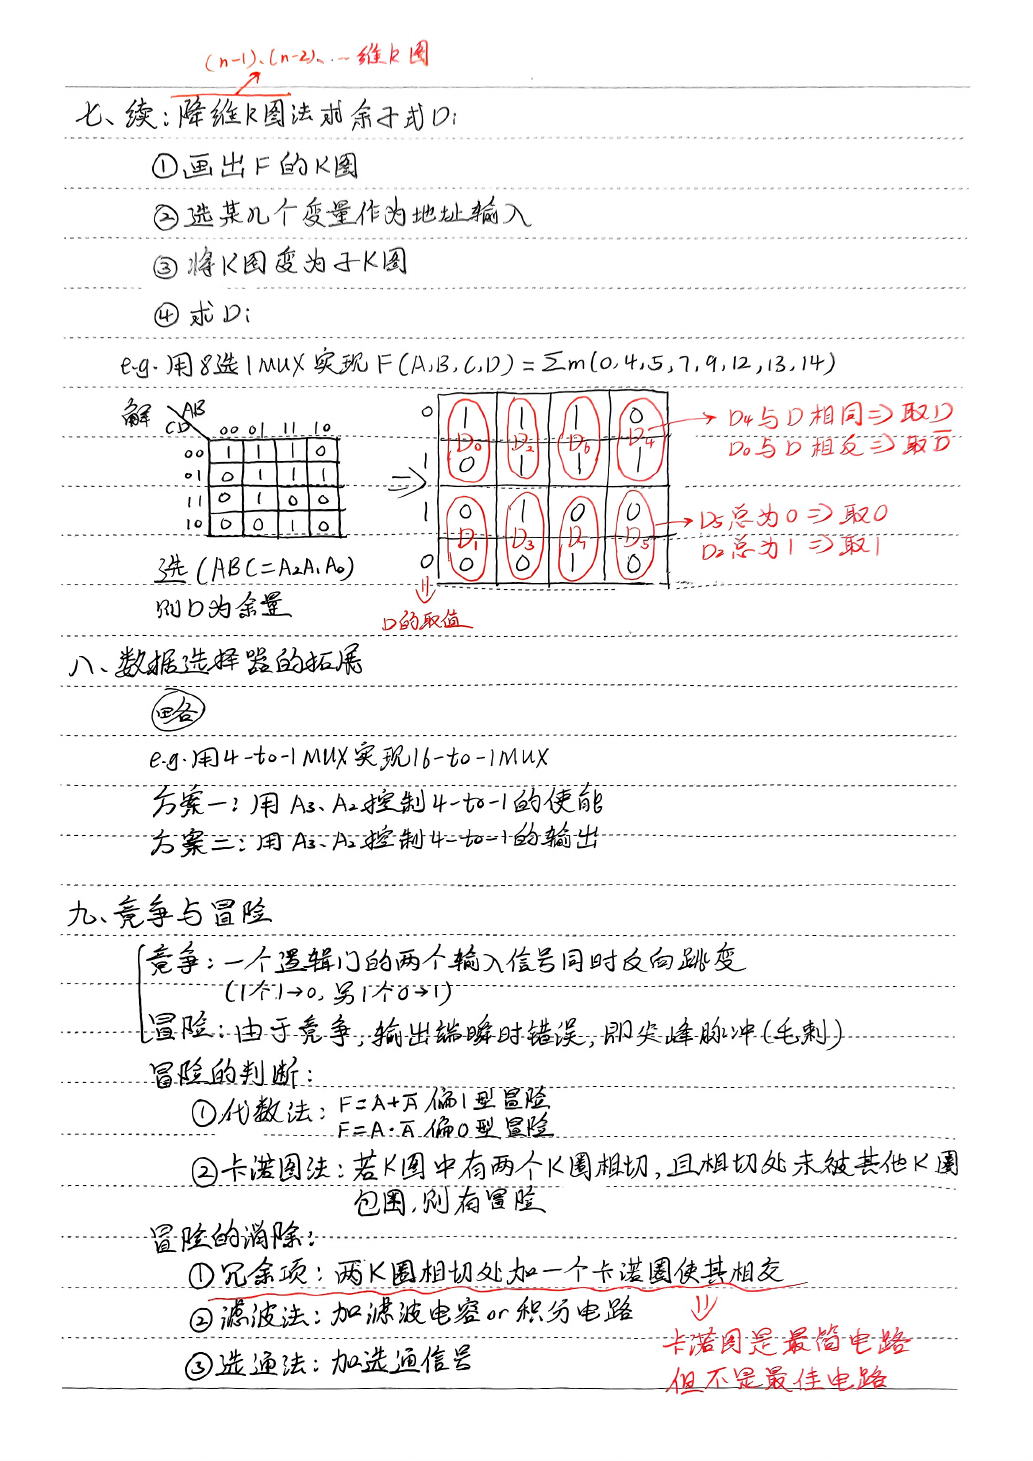 (n-1)、(n-2)、… 维K图
七、续：降维K图法求余子式Di
①画出F的K图
②选某几个变量作为地址输入
③将K图变为子K图
④求Di
e.g. 用8选1MUX实现F(A,B,C,D)=∑m(0,4,5,7,9,12,13,14)
解
AB
CD
00 01 11 10
00 1 1 1 0
01 0 1 1 1
11 0 1 0 0
10 0 0 1 0
⇒
0 1 1 1 0
D0 D2 D6 D4
1 0 1 1 1
1 0 1 0 0
D1 D3 D7 D5
0 0 0 1 0
D4与D相同⇒取D
D0与D相反⇒取D̅
D5总为0⇒取0
D2总为1⇒取1
选(ABC=A2A1A0)
则D为余量
D的取值
八、数据选择器的拓展
略
e.g.用4-to-1MUX实现16-to-1MUX
方案一：用A3、A2控制4-to-1的使能
方案二：用A3、A2控制4-to-1的输出
九、竞争与冒险
竞争：一个逻辑门的两个输入信号同时反向跳变
(1个1→0,另1个0→1)
冒险：由于竞争,输出端瞬时错误,即尖峰脉冲(毛刺)
冒险的判断：
①代数法：F=A+A̅ 偏1型冒险
F=A·A̅ 偏0型冒险
②卡诺图法：若K图中有两个K圈相切,且相切处未被其他K圈
包围,则有冒险
冒险的消除：
①冗余项：两K圈相切处加一个卡诺圈使其相交
②滤波法：加滤波电容or积分电路
③选通法：加选通信号
⇓
卡诺图是最简电路
但不是最佳电路